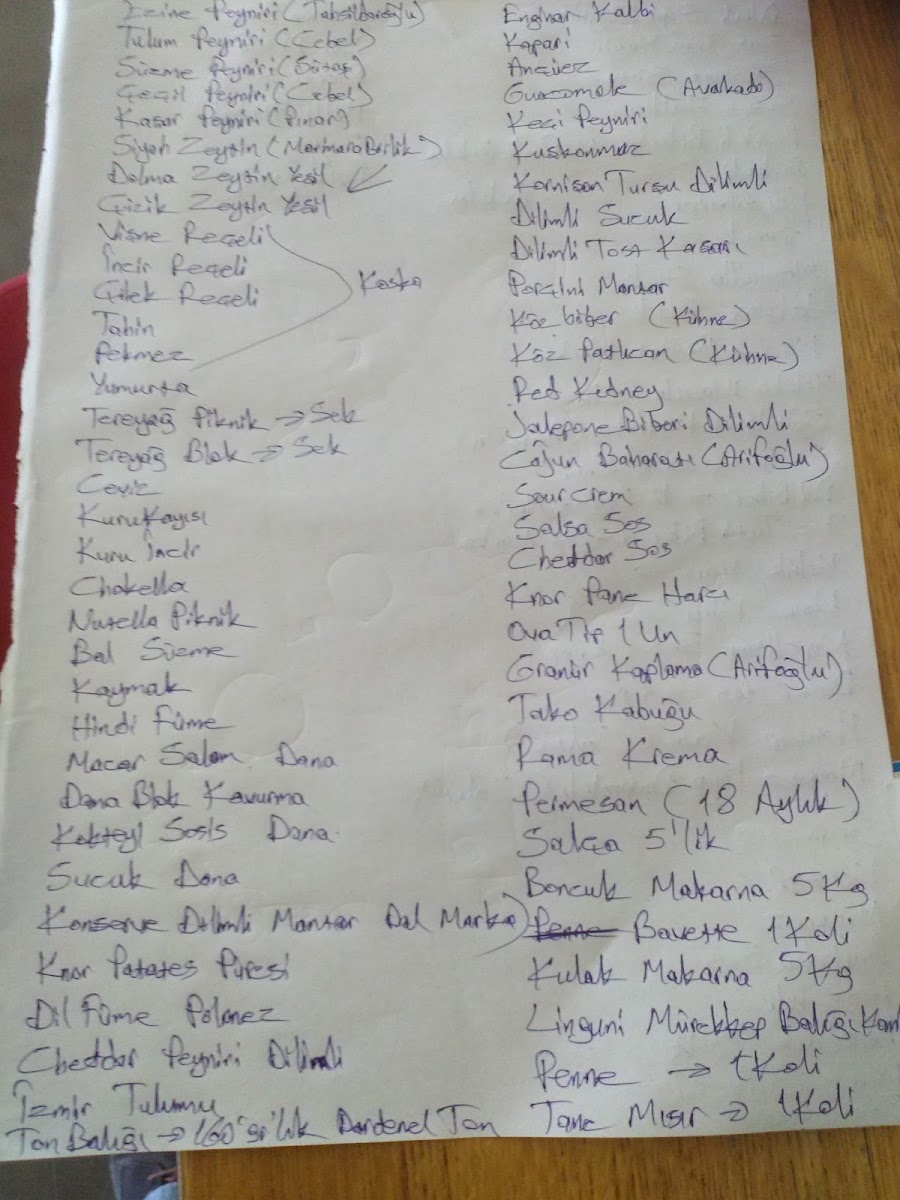 Ezine Peyniri (Tahsildaroğlu)
Tulum Peyniri (Cebel)
Süzme Peyniri (Sütaş)
Çeçil Peyniri (Cebel)
Kaşar Peyniri (Pınar)
Siyah Zeytin (Marmara Birlik)
Dolma Zeytin Yeşil
Çizik Zeytin Yeşil
Vişne Reçeli
İncir Reçeli
Çilek Reçeli
Koska
Tahin
Pekmez
Yumurta
Tereyağ Piknik → Sek
Tereyağ Blok → Sek
Ceviz
Kuru Kayısı
Kuru İncir
Chokella
Nutella Piknik
Bal Süzme
Kaymak
Hindi Füme
Macar Salam Dana
Dana Blok Kavurma
Kokteyl Sosis Dana
Sucuk Dana
Konserve Dilimli Mantar Dal Marka)
Knor Patates Püresi
Dil Füme Polonez
Cheddar Peyniri Dilimli
İzmir Tulumu
Ton Balığı → 160 gr'lık Dardenel Ton
Enginar Kalbi
Kapari
Ançüez
Guacomole (Avakado)
Keçi Peyniri
Kuşkonmaz
Kornişon Turşu Dilimli
Dilimli Sucuk
Dilimli Tost Kaşarı
Porçini Mantar
Köz biber (Kühne)
Köz Patlıcan (Kühne)
Red Kidney
Jalepone Biberi Dilimli
Cajun Baharatı (Arifoğlu)
Sour Crem
Salsa Sos
Cheddar Sos
Knor Pane Harcı
Ova Tip 1 Un
Granür Kaplama (Arifoğlu)
Tako Kabuğu
Rama Krema
Permesan (18 Aylık)
Salça 5'lik
Boncuk Makarna 5 Kg
Penne Bavette 1 Koli
Kulak Makarna 5 Kg
Linguni Mürekkep Balığı
Penne → 1 Koli
Tane Mısır → 1 Koli